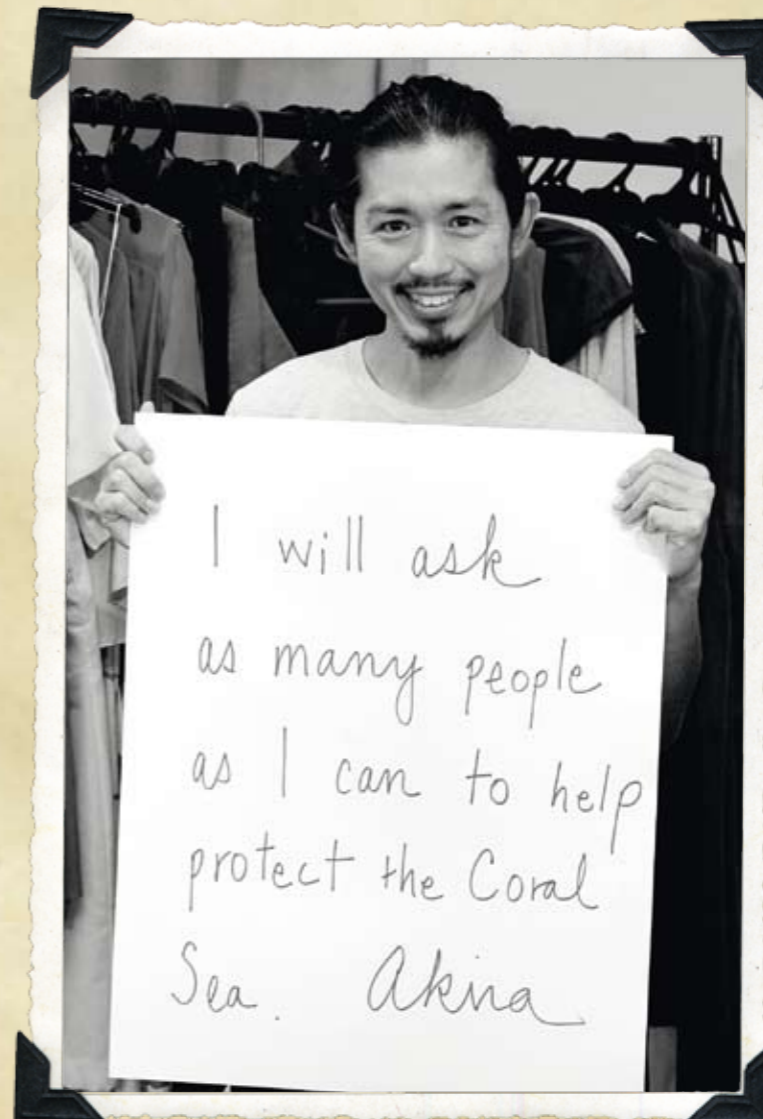 I will ask
as many people
as I can to help
protect the Coral
Sea. Akira